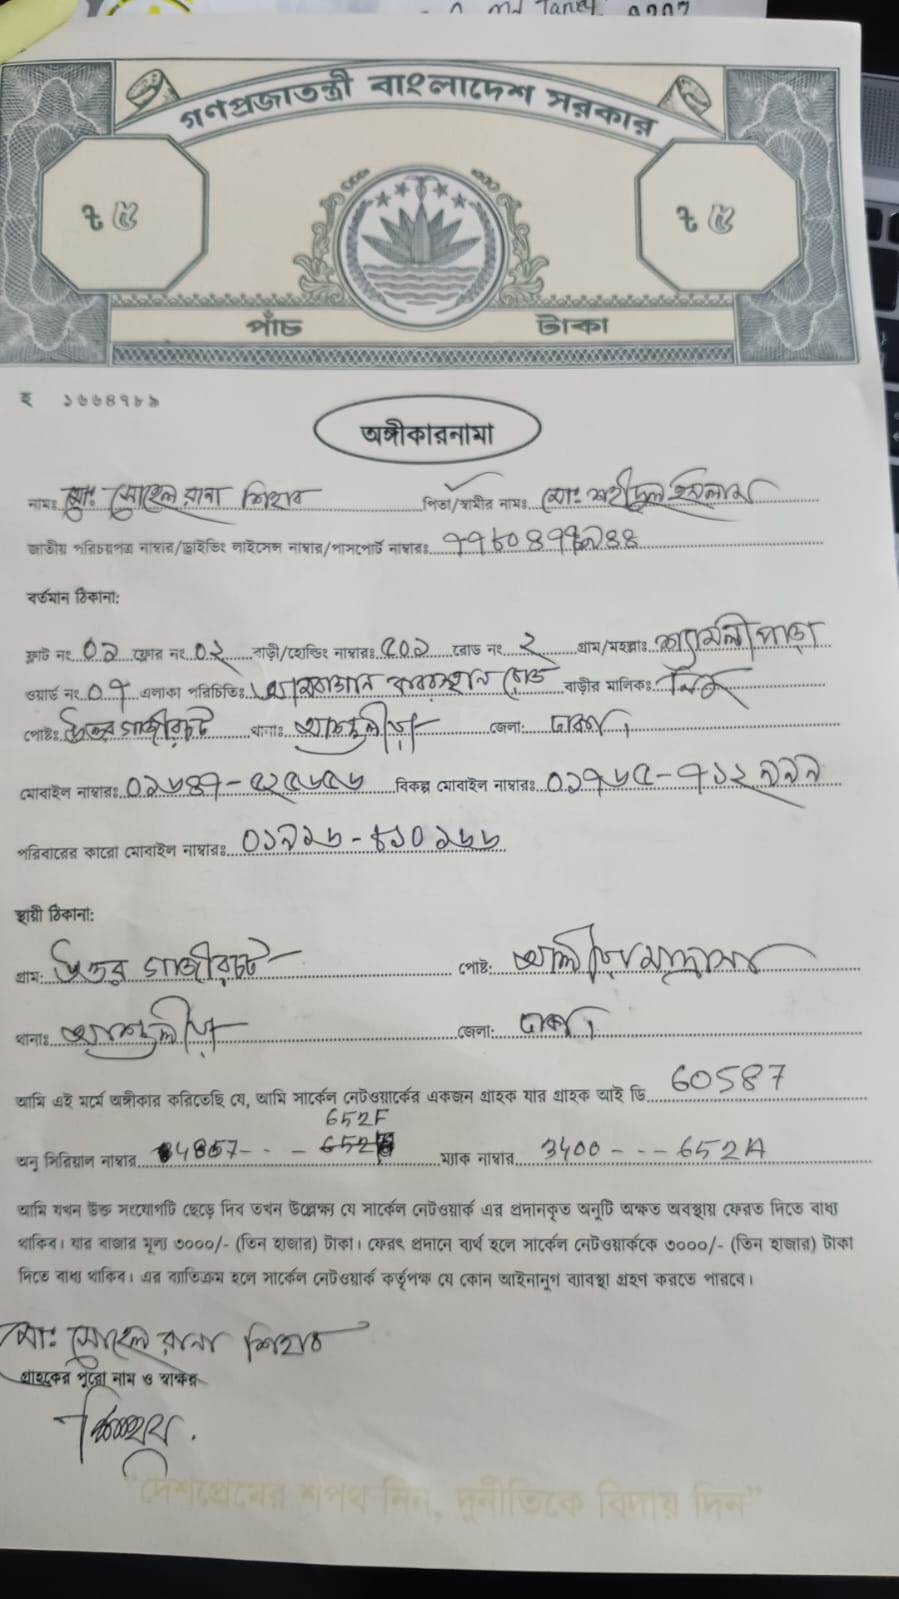 Md Tanet
গণপ্রজাতন্ত্রী বাংলাদেশ সরকার
৳ ৫ ৳ ৫
পাঁচ টাকা
হ ১৬৬৪৭৮৯
অঙ্গীকারনামা
নামঃ মোঃ সোহেল রানা শিহাব পিতা/স্বামীর নামঃ মোঃ শহীদুল ইসলাম
জাতীয় পরিচয়পত্র নাম্বার/ড্রাইভিং লাইসেন্স নাম্বার/পাসপোর্ট নাম্বারঃ
বর্তমান ঠিকানা:
ফ্লাট নং ০১ ফ্লোর নং ০২ বাড়ী/হোল্ডিং নাম্বারঃ ৫০১ রোড নং ২ গ্রাম/মহল্লাঃ
ওয়ার্ড নং ০৭ এলাকা পরিচিতিঃ কবরস্থান রোড বাড়ীর মালিকঃ
পোষ্টঃ উত্তর গাজীরচট থানাঃ আশুলীয়া জেলা: ঢাকা।
মোবাইল নাম্বারঃ ০১৬৪৭-৫২৫৬৫৬ বিকল্প মোবাইল নাম্বারঃ ০১৭৬৫-৭১২৯৯৯
পরিবারের কারো মোবাইল নাম্বারঃ
স্থায়ী ঠিকানা:
গ্রাম: উত্তর গাজীরচট পোষ্ট: আলীয়া মাদ্রাসা
থানাঃ আশুলীয়া জেলা: ঢাকা।
আমি এই মর্মে অঙ্গীকার করিতেছি যে, আমি সার্কেল নেটওয়ার্কের একজন গ্রাহক যার গ্রাহক আই ডি 60587
652F
অনু সিরিয়াল নাম্বার ম্যাক নাম্বার 3400---652A
আমি যখন উক্ত সংযোগটি ছেড়ে দিব তখন উল্লেক্ষ্য যে সার্কেল নেটওয়ার্ক এর প্রদানকৃত অনুটি অক্ষত অবস্থায় ফেরত দিতে বাধ্য
থাকিব। যার বাজার মূল্য ৩০০০/- (তিন হাজার) টাকা। ফেরৎ প্রদানে ব্যর্থ হলে সার্কেল নেটওয়ার্ককে ৩০০০/- (তিন হাজার) টাকা
দিতে বাধ্য থাকিব। এর ব্যতিক্রম হলে সার্কেল নেটওয়ার্ক কর্তৃপক্ষ যে কোন আইনানুগ ব্যাবস্থা গ্রহণ করতে পারবে।
মোঃ সোহেল রানা শিহাব
গ্রাহকের পুরো নাম ও স্বাক্ষর
"দেশপ্রেমের শপথ নিন, দুর্নীতিকে বিদায় দিন"